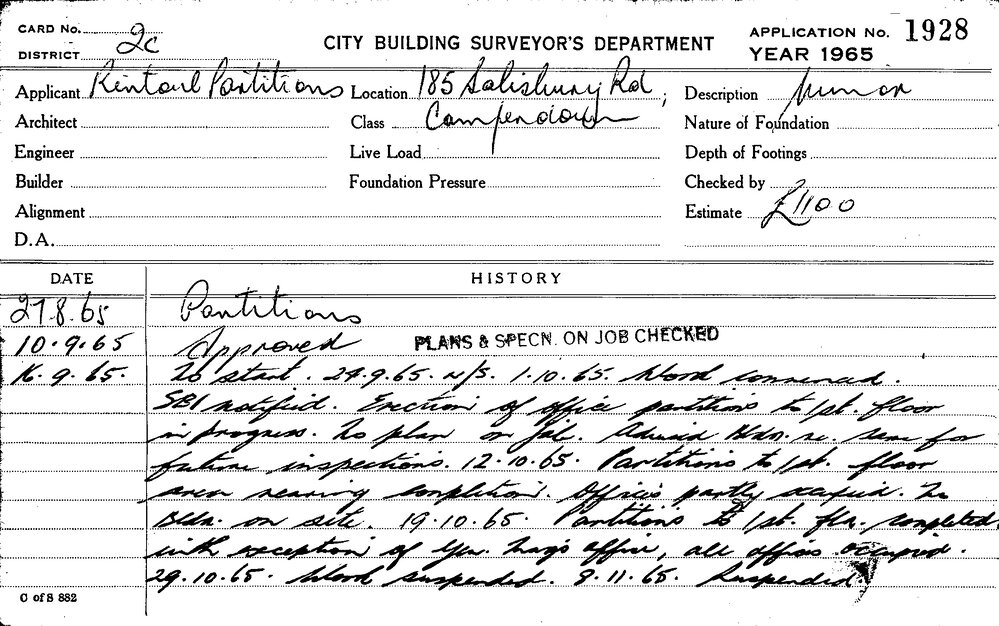 CARD No.
DISTRICT 2c
CITY BUILDING SURVEYOR'S DEPARTMENT
APPLICATION No. 1928
YEAR 1965
Applicant Rintoul Partitions Location 185 Salisbury Rd, Description Minor
Architect Class Camperdown Nature of Foundation
Engineer Live Load Depth of Footings
Builder Foundation Pressure Checked by
Alignment Estimate £1100
D.A.
DATE HISTORY
27.8.65 Partitions
10.9.65 Approved PLANS & SPECN. ON JOB CHECKED
16.9.65. To start. 24.9.65. N/S. 1.10.65. Work commenced.
SBI notified. Erection of office partitions to 1st. floor
in progress. No plan on job. Advised Bldr. re. same for
future inspections. 12.10.65. Partitions to 1st. floor
area nearing completion. Offices partly occupied. No
Bldr. on site. 19.10.65. Partitions to 1st. flr. completed,
with exception of Gen. Mag's office, all offices occupied.
29.10.65. Work suspended. 8.11.65. Suspended.
C of S 882